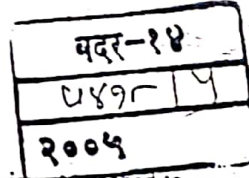 वदर-१४
५४१८ | ५
२००५